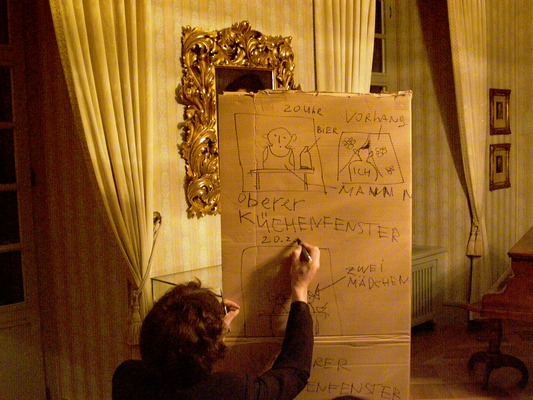 20 UHR
VORHANG
BIER
ICH
MANN
Oberer
KÜCHENFENSTER
20.2
ZWEI
MÄDCHEN
RER
ENFENSTER